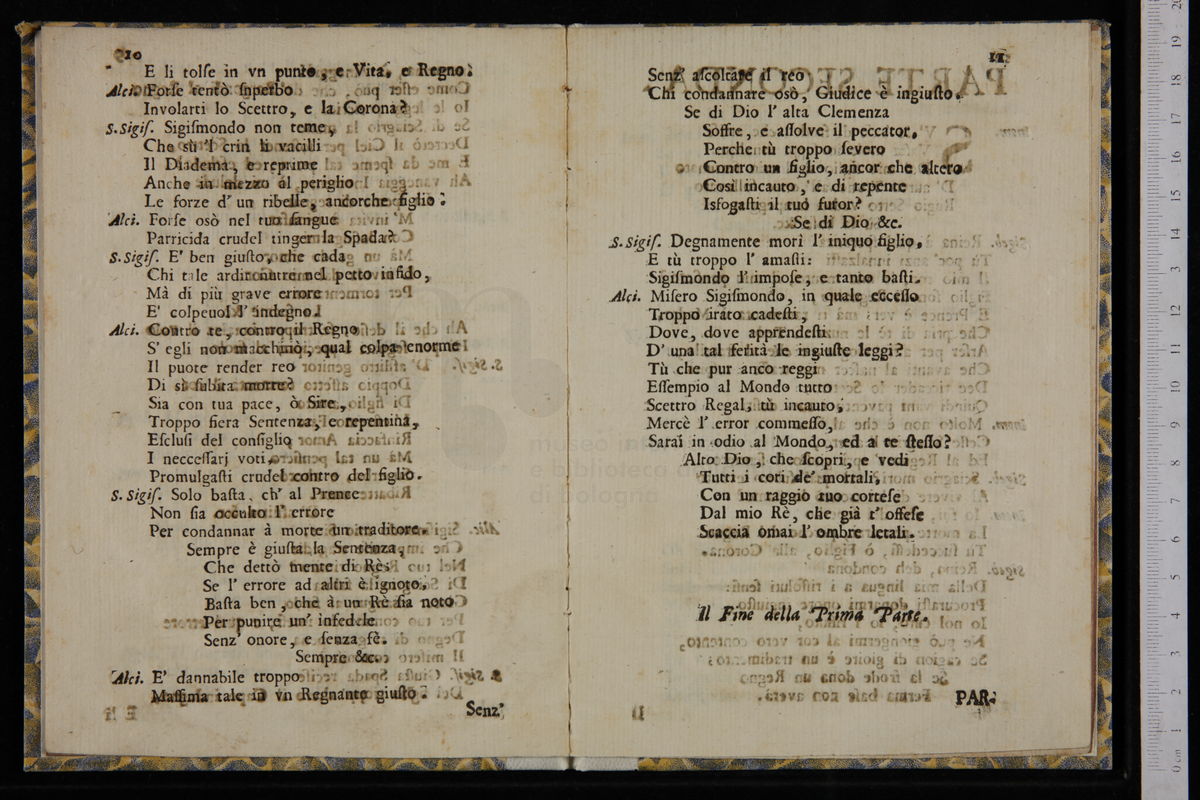 10
E li tolſe in vn punto, e Vita, e Regno.
Alci. Forſe tentò ſuperbo
Involarti lo Scettro, e la Corona?
S. Sigiſ. Sigiſmondo non teme,
Che sù 'l crin li vacilli
Il Diadema, e reprime
Anche in mezzo al periglio
Le forze d' un ribelle, ancorche figlio.
Alci. Forſe osò nel tuo ſangue
Parricida crudel tinger la Spada?
S. Sigiſ. E' ben giuſto, che cada
Chi tale ardir nutre nel petto infido,
Mà di più grave errore
E' colpevol l' indegno.
Alci. Contro te, contro il Regno
S' egli non macchinò, qual colpa enorme
Il puote render reo
Di sì ſubita morte?
Sia con tua pace, ò Sire,
Troppo fiera Sentenza, e repentina,
Eſcluſi del conſiglio
I neceſſarj voti,
Promulgaſti crudel contro del figlio.
S. Sigiſ. Solo baſta, ch' al Prence
Non ſia occulto l' errore
Per condannar à morte un traditore.
Sempre è giuſta la Sentenza,
Che dettò mente di Rè;
Se l' errore ad altri è ignoto,
Baſta ben, che à un Rè ſia noto
Per punire un' infedele
Senz' onore, e ſenza fè.
Sempre &c.
Alci. E' dannabile troppo
Maſſima tale in vn Regnante giuſto.
Senz'
11
Senz' aſcoltare il reo
Chi condannare osò, Giudice è ingiuſto.
Se di Dio l' alta Clemenza
Soffre, e aſſolve il peccator,
Perche tù troppo ſevero
Contro un figlio, ancor che altero
Così incauto, e di repente
Isfogaſti il tuo furor?
Se di Dio &c.
S. Sigiſ. Degnamente morì l' iniquo figlio,
E tù troppo l' amaſti:
Sigiſmondo l' impoſe, e tanto baſti.
Alci. Miſero Sigiſmondo, in quale ecceſſo
Troppo irato cadeſti,
Dove, dove apprendeſti
D' una tal ferità le ingiuſte leggi?
Tù che pur anco reggi
Eſſempio al Mondo tutto
Scettro Regal, tù incauto,
Mercè l' error commeſſo,
Sarai in odio al Mondo, ed a te ſteſſo?
Alto Dio, che ſcopri, e vedi
Tutti i cori de' mortali,
Con un raggio tuo corteſe
Dal mio Rè, che già t' offeſe
Scaccia omai l' ombre letali.
Il Fine della Prima Parte.
PAR-